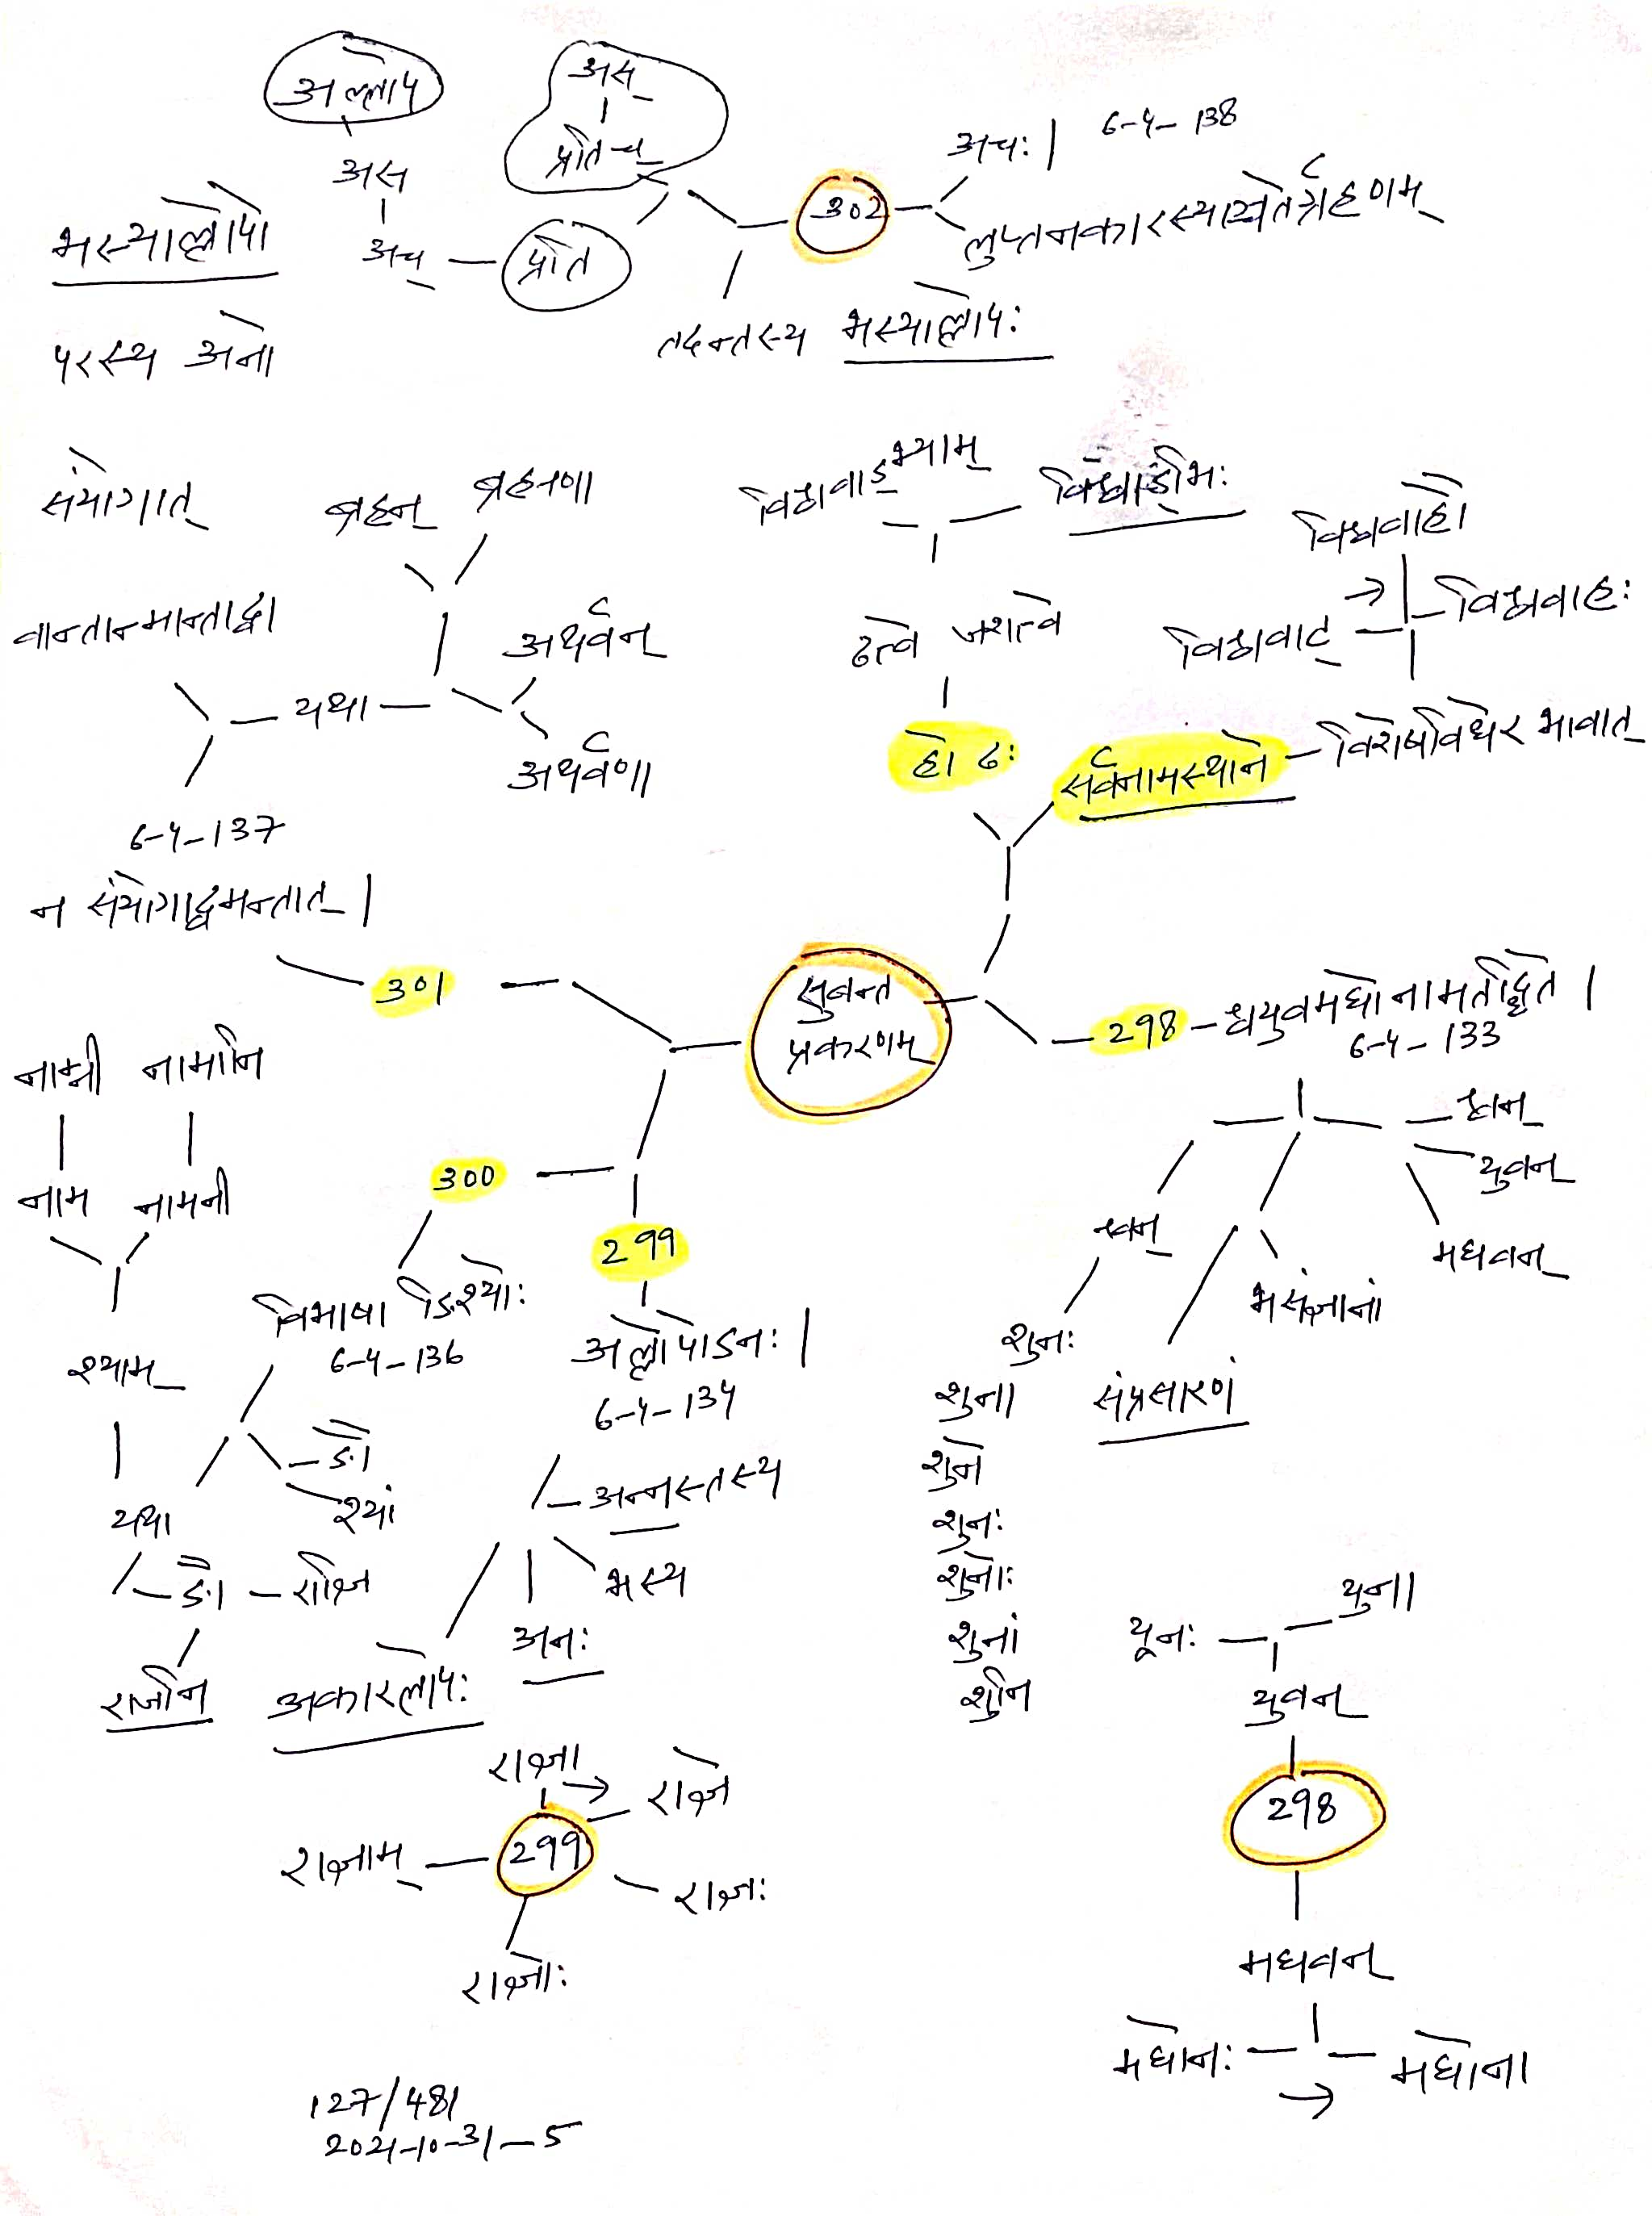 अल्लोप
अस्
प्रतिच्
अस
अच्
प्रति
302
अचः | 6-4-138
लुप्तनकारस्याञ्चतेर्ग्रहणाम्
भस्याल्लोपो
परस्य अनो
तदन्तस्य भस्याल्लोपः
संयोगात्
ब्रह्मन्
ब्रह्मणा
वान्तान्मान्ताद्वा
यथा
अथर्वन्
अथर्वणा
6-4-137
न संयोगाद्वमन्तात् |
301
विश्ववाड्भ्याम्
विश्ववाड्भिः
ढत्वे जश्त्वे
हो ढः
विश्ववाहौ
विश्ववाट्
विश्ववाहः
सर्वनामस्थाने
विशेषविधेरभावात्
सुबन्त
प्रकरणम्
298
श्वयुवमघोनामतद्धिते |
6-4-133
श्वन्
युवन्
मघवन्
भसंज्ञानां
संप्रसारणं
श्वन्
शुनः
शुना
शुने
शुनः
शुनोः
शुनां
शुनि
नाम्नी नामानि
नाम नामनी
श्याम्
300
विभाषा ङिश्योः
6-4-136
ङौ
श्यां
यथा
ङौ
राज्ञि
राजनि
299
अल्लोपोऽनः |
6-4-134
अन्नस्तस्य
भस्य
अनः
अकारलोपः
राज्ञा
राज्ञे
299
राज्ञाम्
राज्ञः
राज्ञोः
यूनः
यूना
युवन्
298
मघवन्
मघोनः
मघोना
127/481
2021-10-31-5